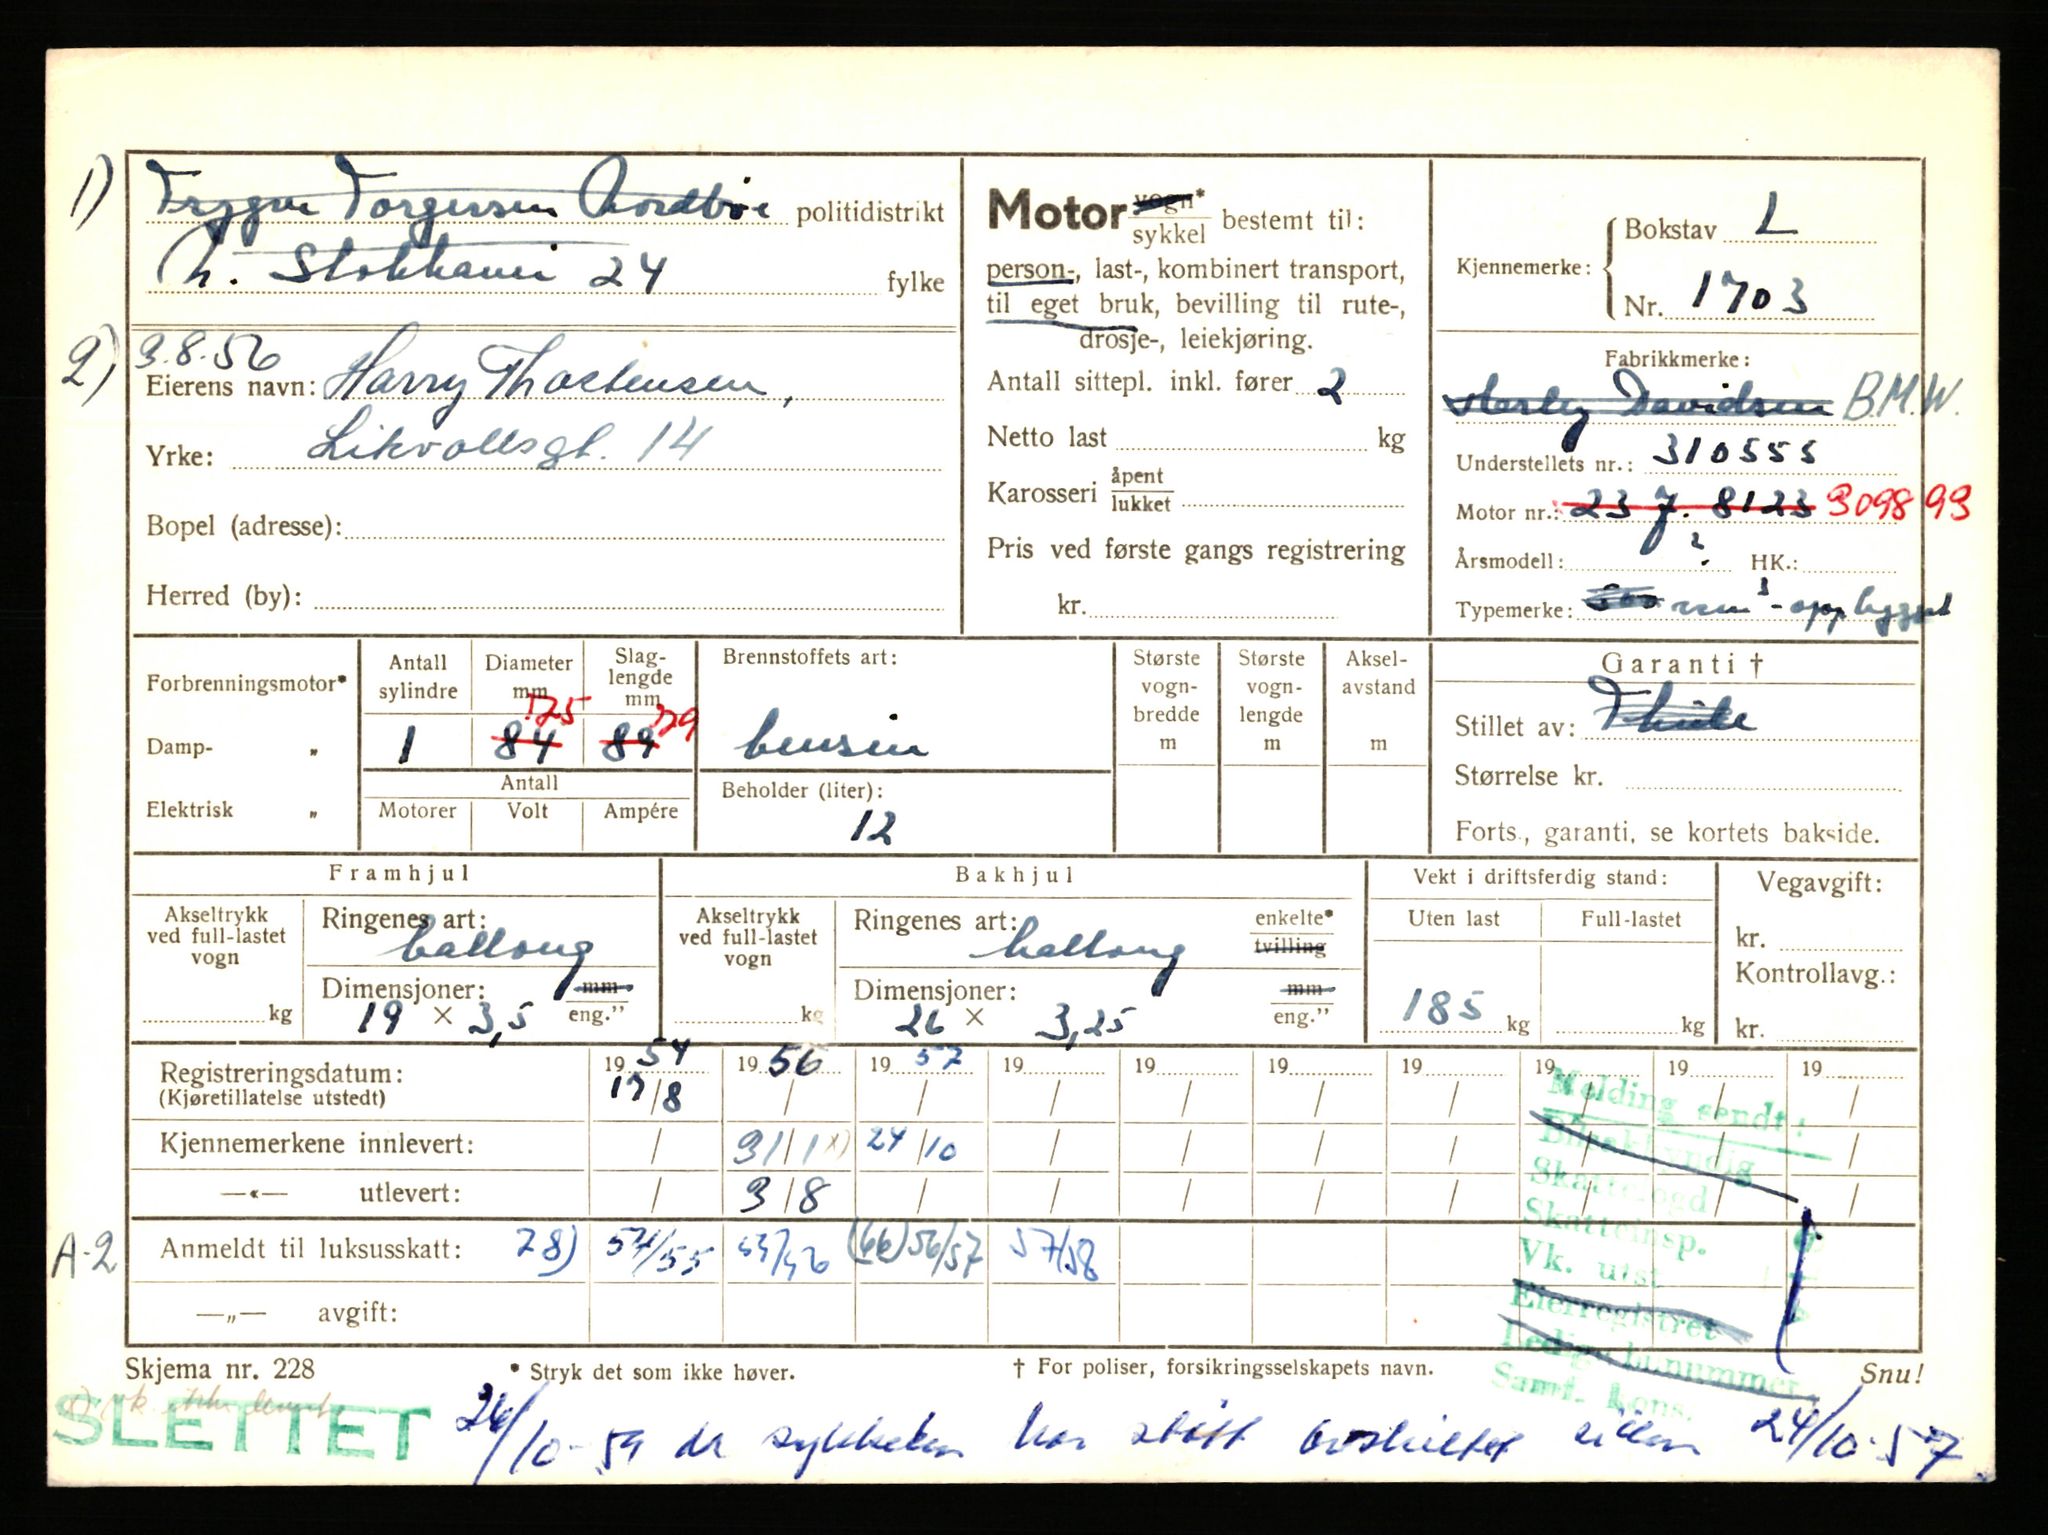 1) Trygve Torgersen Nordbøe politidistrikt
N. Stokkavei 24 fylke
2) 3.8.56
Eierens navn: Harry Thostensen,
Yrke: Likvollsgt. 14
Bopel (adresse):
Herred (by):
Motor vogn* sykkel bestemt til:
person-, last-, kombinert transport,
til eget bruk, bevilling til rute-,
drosje-, leiekjøring.
Antall sittepl. inkl. fører 2
Netto last kg
Karosseri åpent lukket
Pris ved første gangs registrering
kr.
Kjennemerke: Bokstav L
Nr. 1703
Fabrikkmerke:
Harley Davidson B.M.W.
Understellets nr.: 310555
Motor nr.: 23 7. 8123 309893
Årsmodell: ? HK.:
Typemerke: oppbygget
Forbrenningsmotor*
Damp- „
Elektrisk „
Antall sylindre
1
Diameter mm
84 75
Slag-lengde mm
89
Antall
Motorer Volt Ampére
Brennstoffets art:
bensin
Beholder (liter):
12
Største vogn-bredde m
Største vogn-lengde m
Aksel-avstand m
Garanti †
Stillet av:
Størrelse kr.
Forts., garanti, se kortets bakside.
Framhjul
Akseltrykk ved full-lastet vogn
kg
Ringenes art:
ballong
Dimensjoner: mm
19 × 3,5 eng."
Bakhjul
Akseltrykk ved full-lastet vogn
kg
Ringenes art: enkelte*
ballong tvilling
Dimensjoner: mm
26 × 3,25 eng."
Vekt i driftsferdig stand:
Uten last Full-lastet
185 kg kg
Vegavgift:
kr.
Kontrollavg.:
kr.
Registreringsdatum: 19 54 19 56 19 57 19 19 19 19 19 19 19
(Kjøretillatelse utstedt) 17/8
Kjennemerkene innlevert: 31/1 x) 24/10
—«— utlevert: 3/8
A-2 Anmeldt til luksusskatt: 28) 54/55 55/56 (66) 56/57 57/58
—„— avgift:
Melding sendt:
Bilsakkyndig
Skattefogd
Skatteinsp.
Vk. utst
Eierregistret
Ledige k.nummer
Saml. kons.
Skjema nr. 228 * Stryk det som ikke høver. † For poliser, forsikringsselskapets navn. Snu!
x) vk. ikke levert
SLETTET 26/10-59 da sykkelen har stått avskiltet siden 24/10-57.